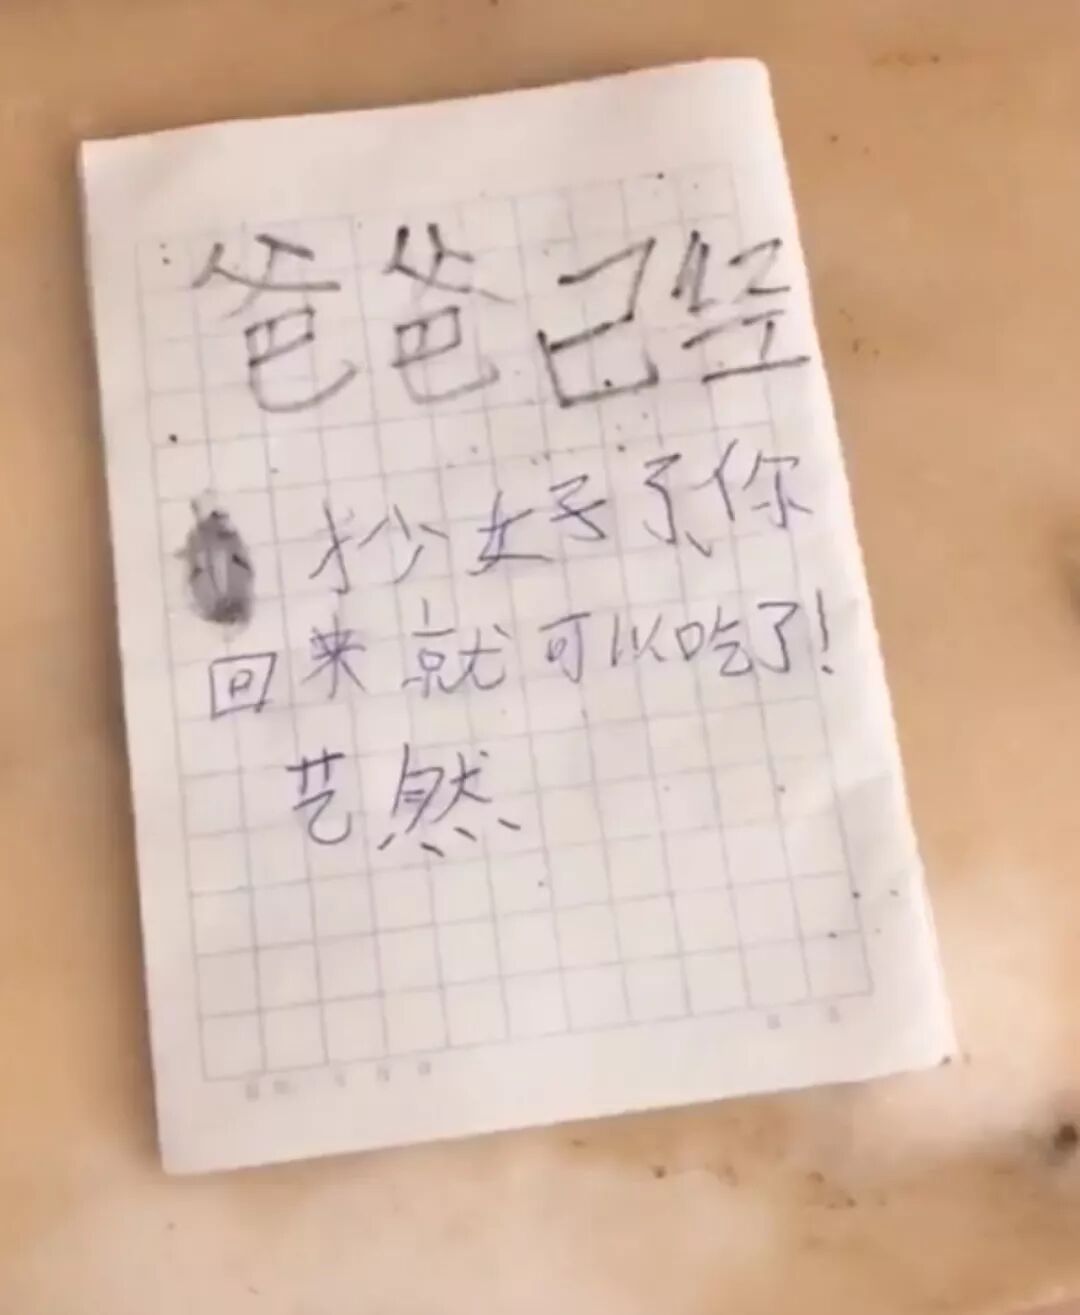 爸爸已经
抄好了你
回来就可以吃了!
艺然